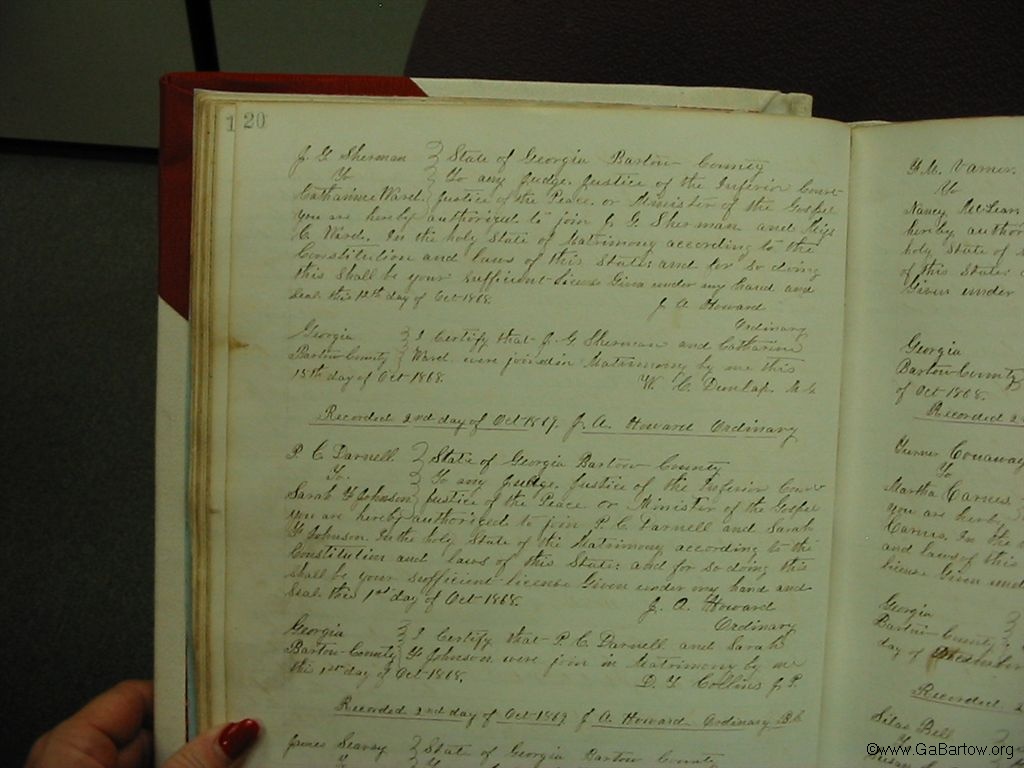 120
J. G. Sherman } State of Georgia Bartow County
To } To any Judge. Justice of the Inferior Court
Catharine Ward. } Justice of the Peace. or Minister of the Gospel
you are hereby authorized to join J. G. Sherman and Miss
C. Ward. In the holy State of Matrimony according to the
Constitution and laws of this State: and for so doing
this shall be your sufficient license Given under my hand and
seal this 12th day of Oct 1868.
J. A. Howard
Ordinary
Georgia } I Certify that J. G Sherman and Catharine
Bartow County } Ward were joined in Matrimony by me this
15th day of Oct 1868.
W. C. Dunlap.
Recorded 2nd day of Oct 1869. J. A. Howard Ordinary
P. C. Darnell } State of Georgia Bartow County
To. } To any Judge. Justice of the Inferior Court
Sarah Johnson } Justice of the Peace or Minister of the Gospel
you are hereby authorized to join P. C. Darnell and Sarah
Johnson. In the holy State of the Matrimony according to the
Constitution and laws of this State: and for so doing this
shall be your sufficient license Given under my hand and
Seal this 1st day of Oct 1868.
J. A. Howard
Ordinary
Georgia } I Certify that P. C. Darnell and Sarah
Bartow County } Johnson were join in Matrimony by me
this 1st day of Oct 1868.
D. Collins J. P.
Recorded 2nd day of Oct 1869 J A. Howard Ordinary
James Searcy } State of Georgia Bartow County
Nancy McLean
hereby author
holy State of
of this State:
Given under
Georgia
Bartow County
of Oct 1868.
Recorded 2
Turner Conaway
To
Martha Carnes
you are hereby
Carnes. In the
and laws of this
license Given und
Georgia
Bartow County
day of
Recorded
Silas Bell
©www.GaBartow.org